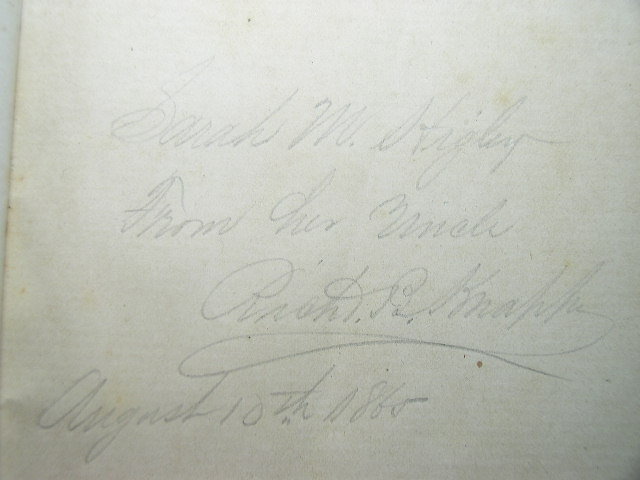 Sarah M. Higley
From her Uncle
Richd. R. Knapp
August 10th 1865